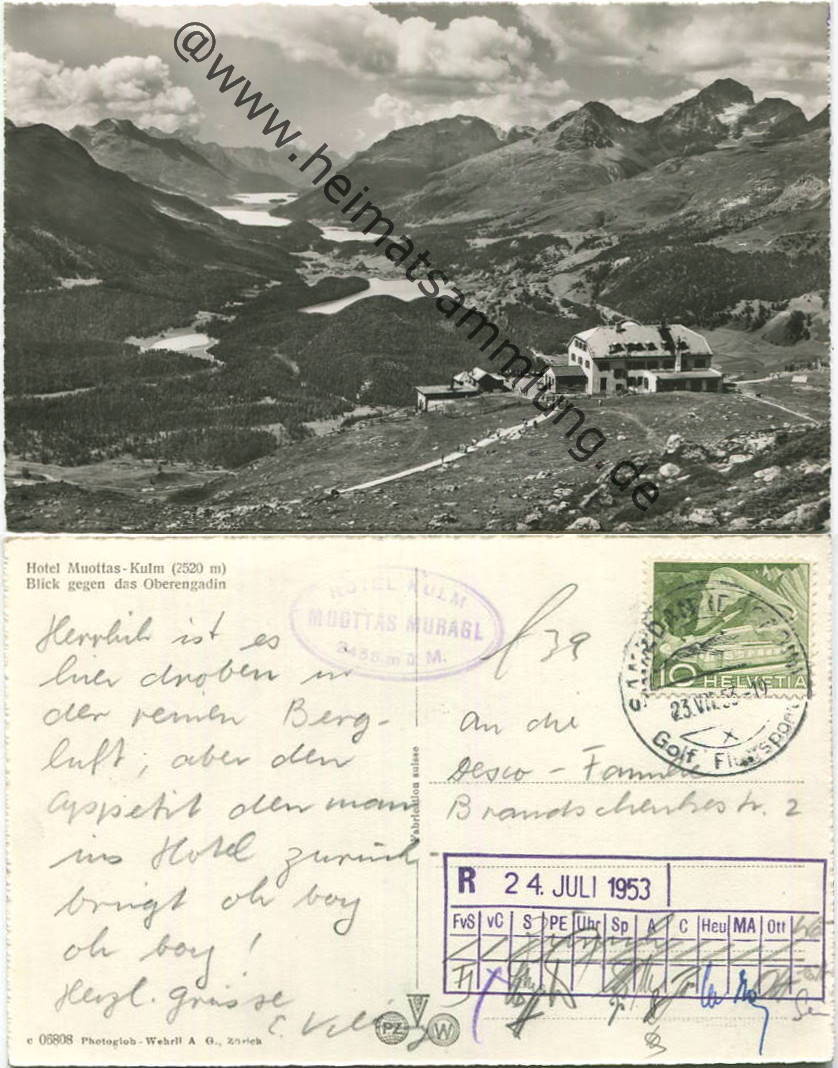 @www.heimatsammlung.de
Hotel Muottas-Kulm (2520 m)
Blick gegen das Oberengadin
HOTEL KULM
MUOTTAS MURAGL
2455 m ü. M.
10 HELVETIA
23.VII.53-19
Golf, Flugsport
Herrlich ist es
hier droben in
der reinen Berg-
luft, aber den
Appetit den man
ins Hotel zurück
bringt oh boy
oh boy!
Herzl. Grüsse
An die
Desco-
Brandschenkestr. 2
Zürich
Fabrication suisse
R 24. JULI 1953
FvS vC S PE Uhr Sp A C Heu MA Ott
PZ W
c 06808 Photoglob-Wehrli A G., Zürich